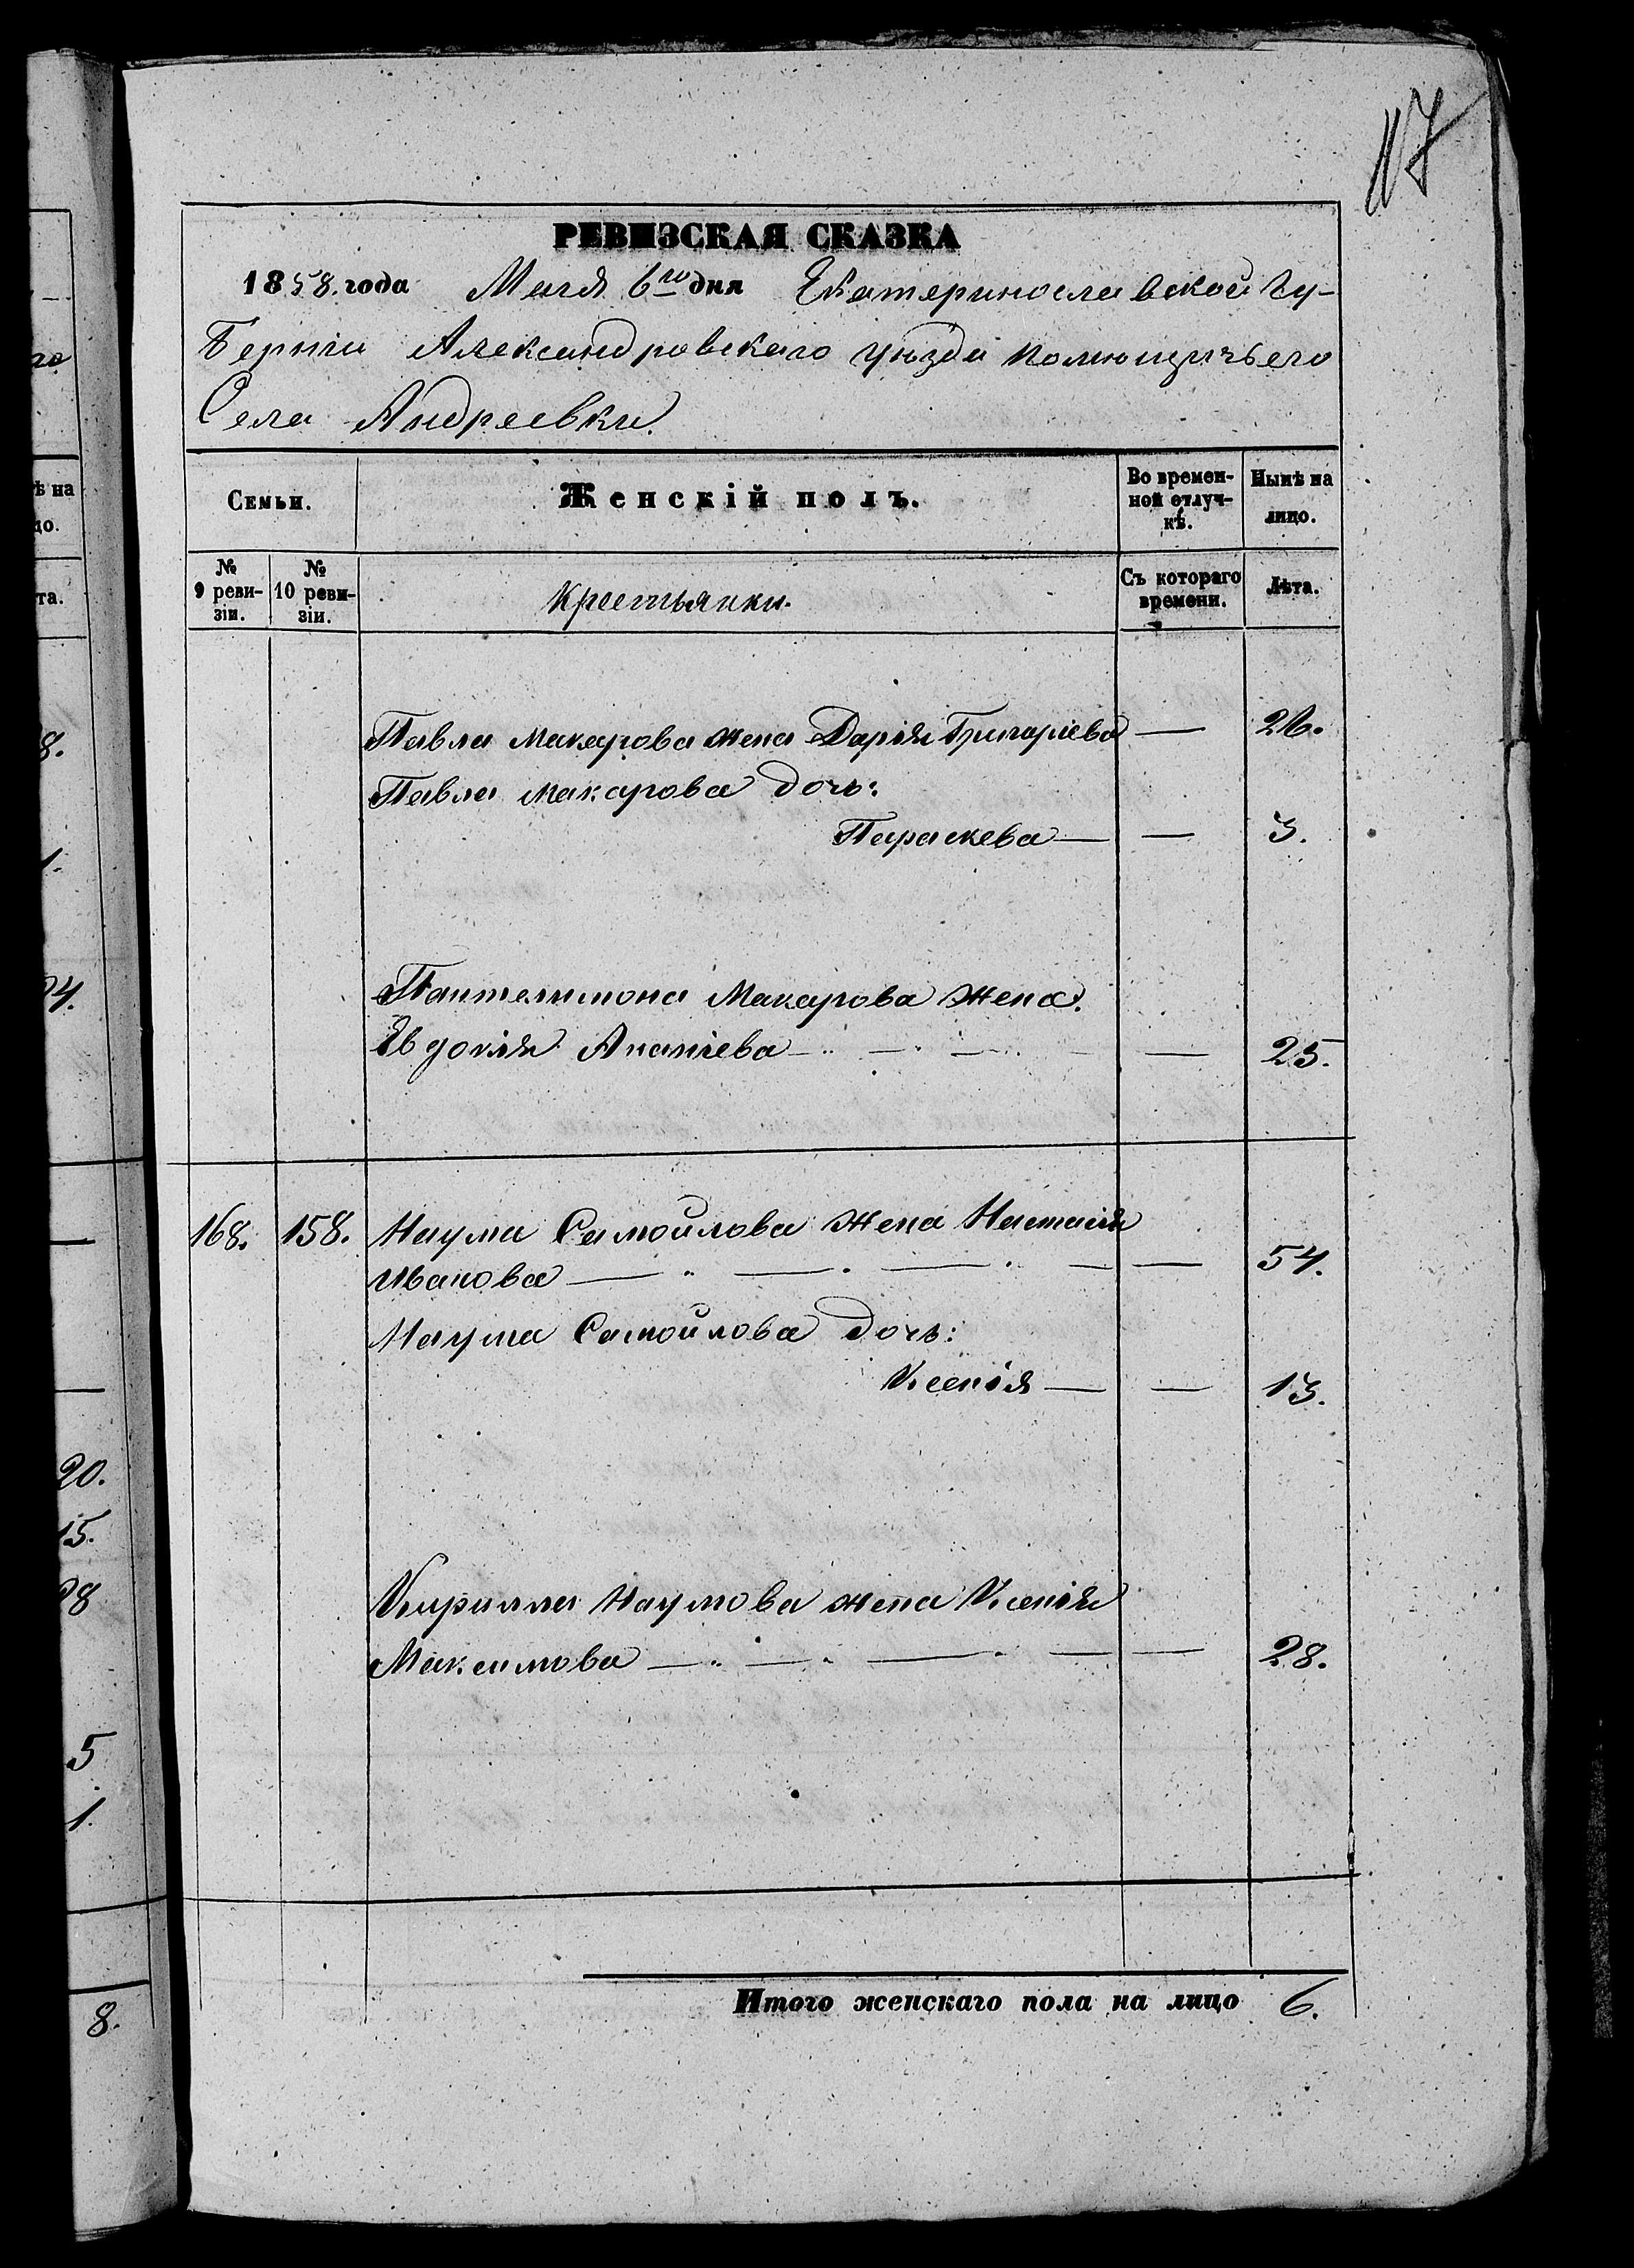 117
РЕВИЗСКАЯ СКАЗКА
1858. года Маія 6го дня Екатеринославской Гу-
берніи Александровскаго уѣзда помѣщичьего
Села Андреевки.
го
ѣ на
цо.
та.
Семьи.
Женскій полъ.
Во времен-
ной отлуч-
кѣ.
Нынѣ на
лицо.
№
9 реви-
зіи.
№
10 реви-
зіи.
Крестьянки.
Съ котораго
времени.
Лѣта.
Павла Макарова жена Дарія Григоріева —
Павла Макарова дочь:
Параскева — — 3.
Пантелимона Макарова жена.
Евдокія Ананіева — — — — — 25.
168. 158. Наума Самойлова жена Настасія
Иванова — — — — — 54.
Наума Самойлова дочь:
Ксенія — — 13.
Кирилла Наумова жена Ксенія
Максимова — — — — — 28.
Итого женскаго пола на лицо 6.
8.
1.
20.
15.
5
1.
8.